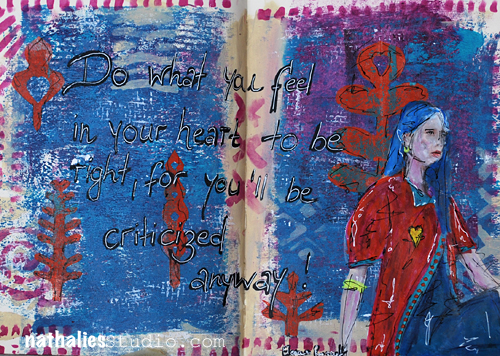 Do what you feel
in your heart to be
right, for you'll be
criticized
anyway!
nathaliesstudio.com